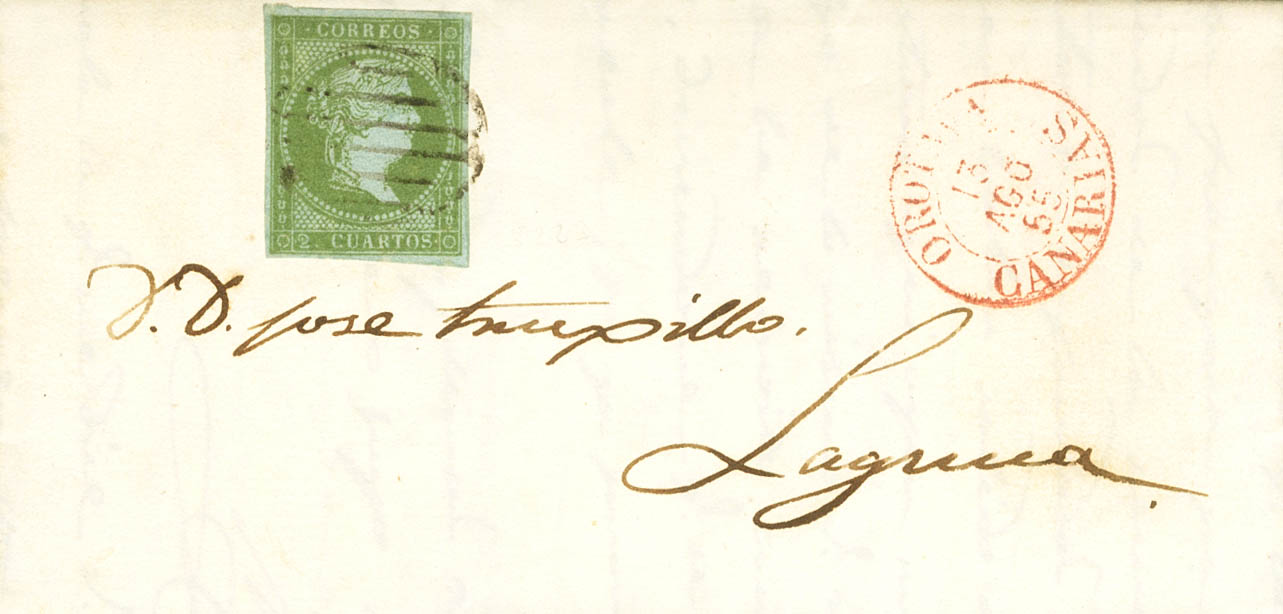 CORREOS
2 CUARTOS
OROTAVA
CANARIAS
13
AGO
55
D. D. jose trupillo.
Laguna